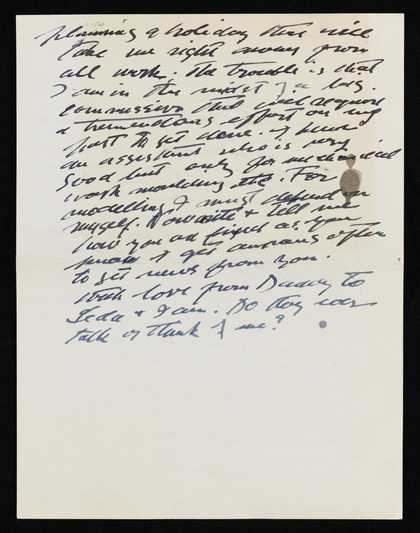 planning a holiday that will
take me right away from
all work. The trouble is that
I am in the midst of a big
commission that will require
a tremendous effort on my
part to get done. I have
an assistant who is very
good but only for mechanical
work moulding etc. For
modelling I must depend on
myself. Now write & tell me
how you all are as you
know I get anxious often
to get news from you.
With love from Daddy to
Leda & Ian. Do they ever
talk or think of me?